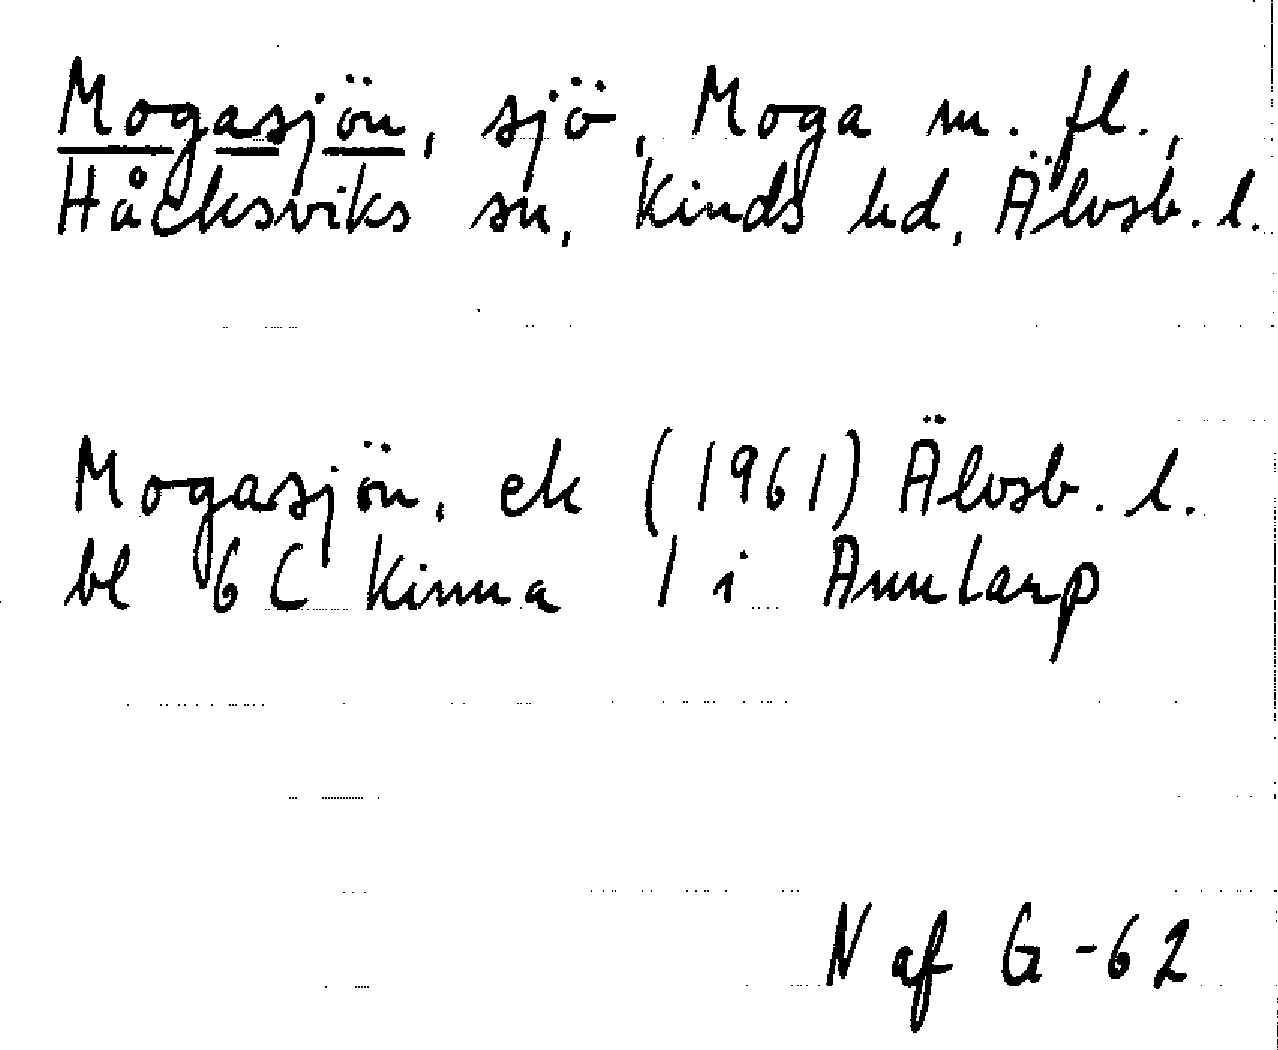 Mogasjön, sjö, Moga m. fl.,
Håcksviks sn, Kinds hd, Älvsb. l.
Mogasjön, ek (1961) Älvsb. l.
bl 6 C Kinna 1 i Annlarp
N af G -62